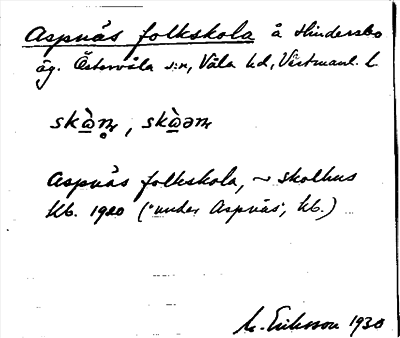 Aspnäs folkskola å Hindersbo
äg. Östervåla s:n, Våla hd, Västmanl. l.
Aspnäs folkskola, ~ skolhus
Kb. 1920 ("under Aspnäs", Kb.)
M. Eriksson 1930